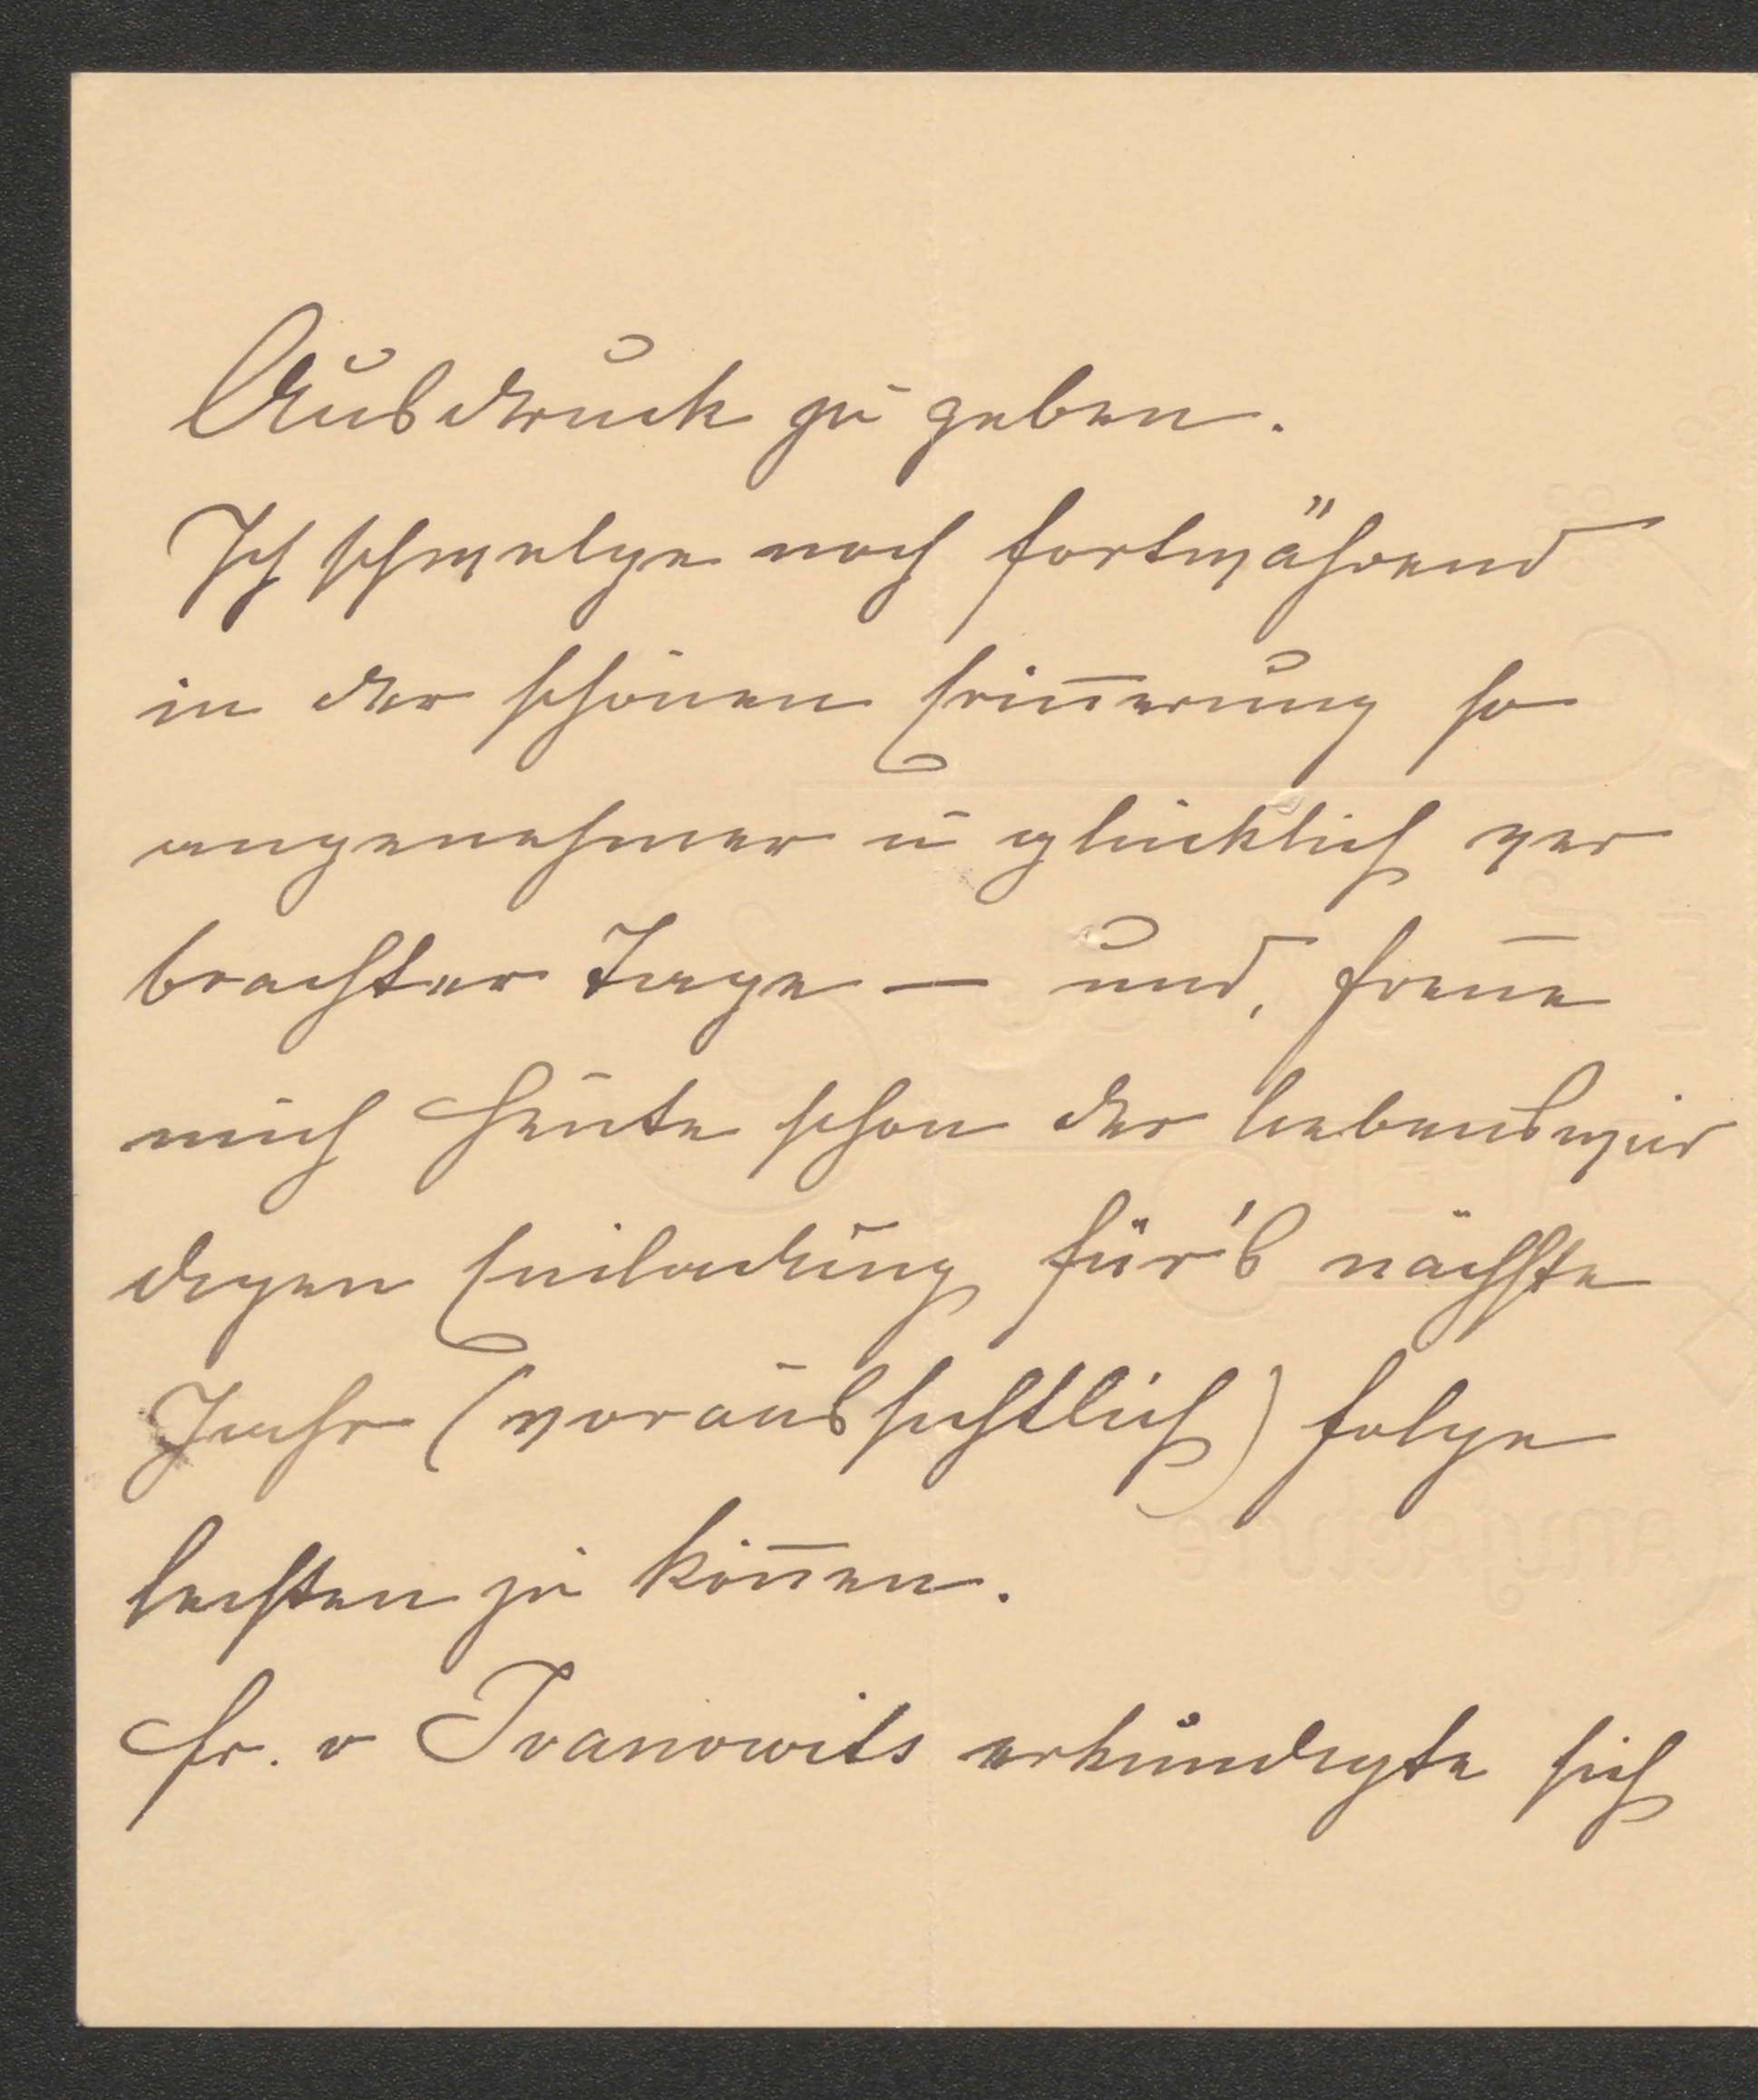 Ausdruck zu geben.
Ich schwelge noch fortwährend
in der schönen Erin̄erung so
angenehmer u glücklich ver
brachter Tage — und, freue
mich heute schon der liebenswür
digen Einladung für's nächste
Jahr (voraussichtlich) folge
leisten zu kön̄en.
Fr. v Ivanowits erkundigte sich